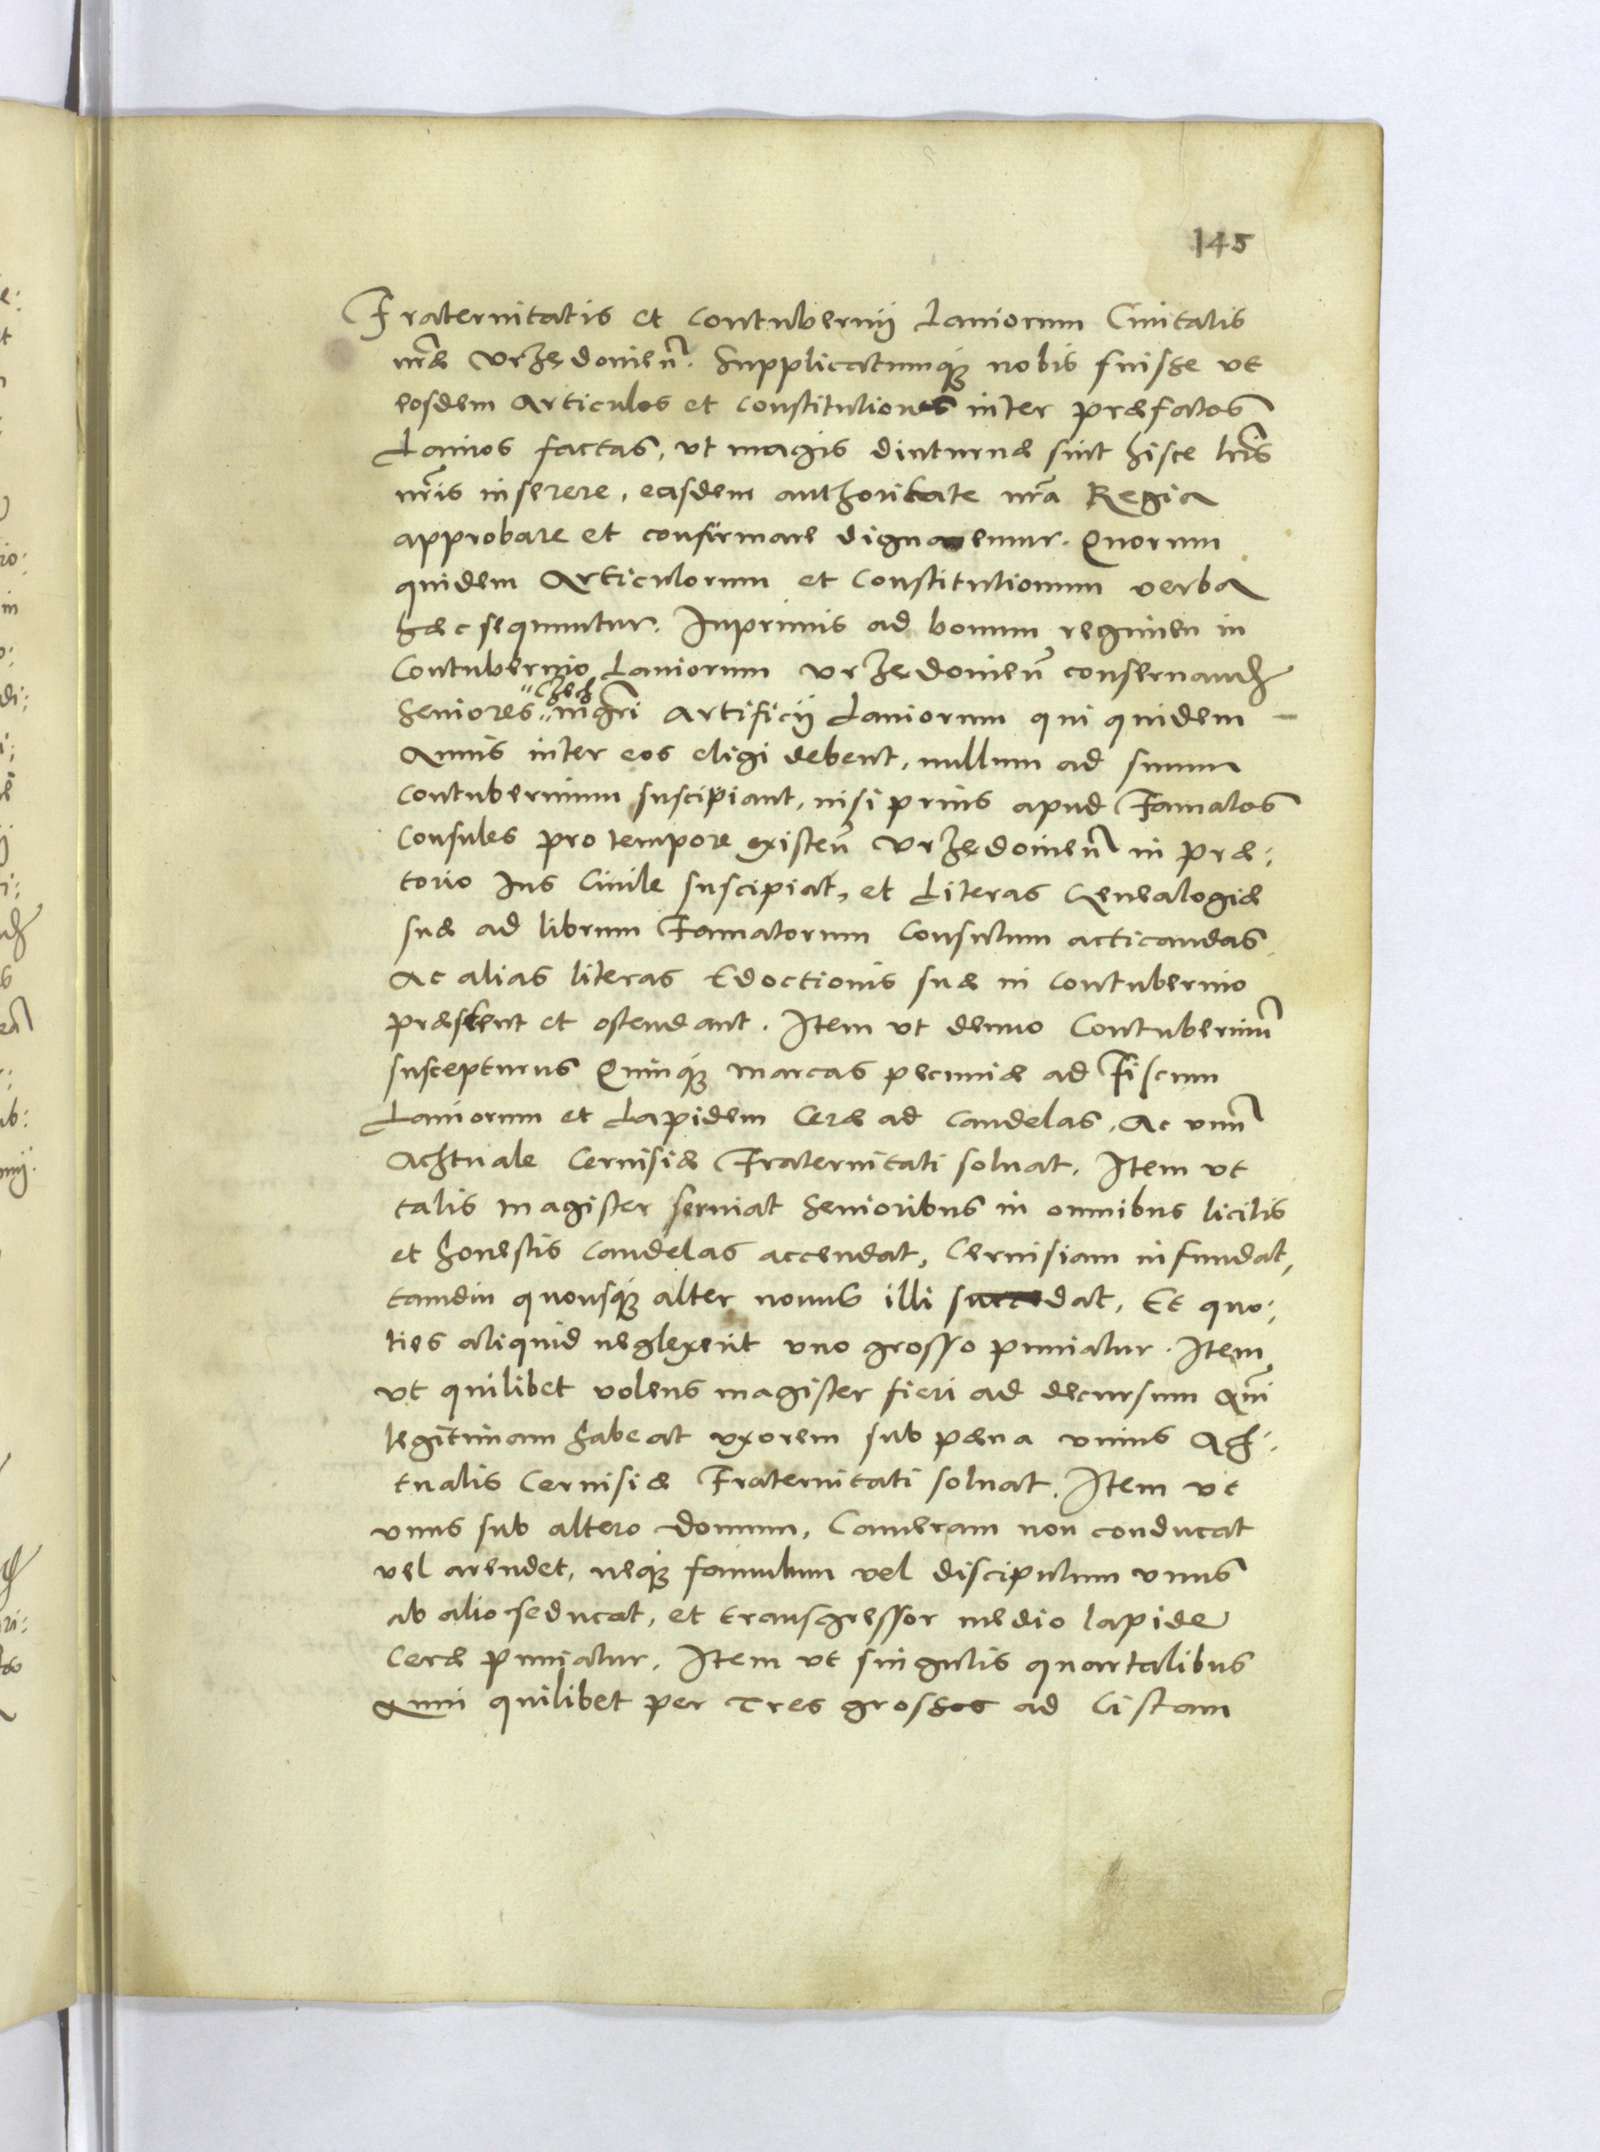 145
Fraternitatis et Contubernij Laniorum Ciuitatis
nrae Vrzedouien. Supplicatumq nobis fuisse vt
eosdem Articulos et Constitutiones inter praefatos
Lanios factas, vt magis diuturnae sint hisce lris
nris inserere, easdem authoritate nra Regia
approbare et confirmare dignaremur. Quorum
quidem Articulorum et Constitutionum verba
haec sequuntur. Inprimis ad bonum regimen in
Contubernio Laniorum Vrzedouien conseruand
Seniores czech mgri Artificij Laniorum qui quidem
Annis inter eos eligi debent, nullum ad suum
Contubernium suscipiant, nisi prius apud Famatos
Consules pro tempore existen Vrzedouien in prae:
torio Ius Ciuile suscipiat, et Literas Genealogiae
suae ad librum Famatorum Consulum acticandas
Ac alias literas Edoctionis suae in Contubernio
praestent et ostendant. Item vt denuo Contuberniu
suscepturus Quinq marcas pecuniae ad Fiscum
Laniorum et Lapidem Cerae ad Candelas, Ac vnu
Achtuale Ceruisiae Fraternitati soluat. Item vt
talis magister seruiat Senioribus in omnibus licitis
et honestis Candelas accendat, Ceruisiam infundat,
tamdiu quousq alter nouus illi succedat, Et quo:
ties aliquid neglexerit vno grosso puniatur. Item
vt quilibet volens magister fieri ad decursum Ani
legitimam habeat vxorem sub paena vnius Ach:
tualis Ceruisiae Fraternitati soluat. Item vt
vnus sub altero Domum, Cameram non conducat
vel arendet, neq famulum vel discipulum vnus
ab alio seducat, et transgressor medio lapide
Cerae puniatur. Item vt singulis quartalibus
Anni quilibet per Tres grossos ad Cistam